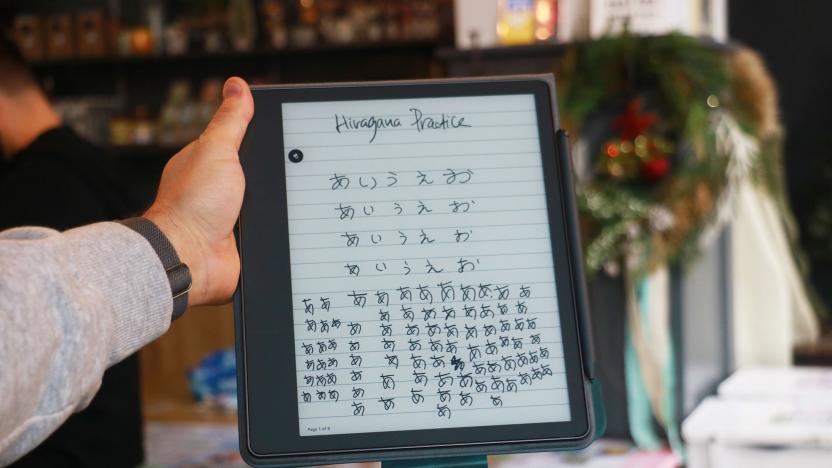 Hiragana Practice
あ い う え お
あ い う え お
あ い う え お
あ い う え お
ああ あ あ あ あ あ あ あ あ あ
あああ あ あ あ あ あ あ あ あ
あああ あ あ あ あ あ あ あ あ あ
あああ あ あ あ あ あ あ あ あ
あああ あ あ あ あ あ あ あ あ あ
あああ あ あ あ あ あ あ あ あ
あ あ あ あ
あ
Page 1 of 6